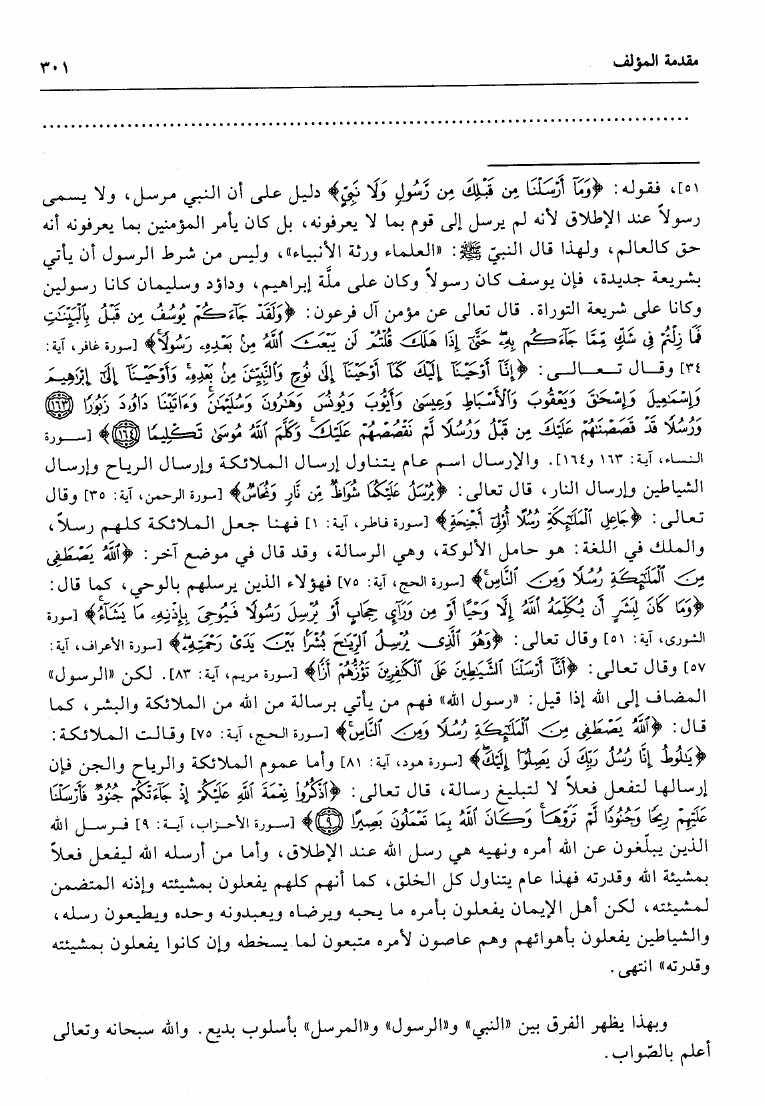 مقدمة المؤلف ٣٠١
٥١]، فقوله: ﴿وَمَآ أَرْسَلْنَا مِن قَبْلِكَ مِن رَّسُولٍ وَلَا نَبِيٍّ﴾ دليل على أن النبي مرسل، ولا يسمى
رسولاً عند الإطلاق لأنه لم يرسل إلى قوم بما لا يعرفونه، بل كان يأمر المؤمنين بما يعرفونه أنه
حق كالعالم، ولهذا قال النبيّ ﷺ: «العلماء ورثة الأنبياء»، وليس من شرط الرسول أن يأتي
بشريعة جديدة، فإن يوسف كان رسولاً وكان على ملَّة إبراهيم، وداؤد وسليمان كانا رسولين
وكانا على شريعة التوراة. قال تعالى عن مؤمن آل فرعون: ﴿وَلَقَدْ جَآءَكُمْ يُوسُفُ مِن قَبْلُ بِٱلْبَيِّنَٰتِ
فَمَا زِلْتُمْ فِى شَكٍّ مِّمَّا جَآءَكُم بِهِۦ حَتَّىٰٓ إِذَا هَلَكَ قُلْتُمْ لَن يَبْعَثَ ٱللَّهُ مِنۢ بَعْدِهِۦ رَسُولًا﴾ [سورة غافر، آية:
٣٤] وقـال تـعـالـى: ﴿إِنَّآ أَوْحَيْنَآ إِلَيْكَ كَمَآ أَوْحَيْنَآ إِلَىٰ نُوحٍ وَٱلنَّبِيِّـۧنَ مِنۢ بَعْدِهِۦ وَأَوْحَيْنَآ إِلَىٰٓ إِبْرَٰهِيمَ
وَإِسْمَٰعِيلَ وَإِسْحَٰقَ وَيَعْقُوبَ وَٱلْأَسْبَاطِ وَعِيسَىٰ وَأَيُّوبَ وَيُونُسَ وَهَٰرُونَ وَسُلَيْمَٰنَ وَءَاتَيْنَا دَاوُۥدَ زَبُورًا ﴿١٦٣﴾
وَرُسُلًا قَدْ قَصَصْنَٰهُمْ عَلَيْكَ مِن قَبْلُ وَرُسُلًا لَّمْ نَقْصُصْهُمْ عَلَيْكَ وَكَلَّمَ ٱللَّهُ مُوسَىٰ تَكْلِيمًا ﴿١٦٤﴾﴾ [سـورة
النساء، آية: ١٦٣ و١٦٤]. والإرسال اسم عام يتناول إرسال الملائكة وإرسال الرياح وإرسال
الشياطين وإرسال النار، قال تعالى: ﴿يُرْسَلُ عَلَيْكُمَا شُوَاظٌ مِّن نَّارٍ وَنُحَاسٌ﴾ [سورة الرحمن، آية: ٣٥] وقال
تعالى: ﴿جَاعِلِ ٱلْمَلَٰٓئِكَةِ رُسُلًا أُو۟لِىٓ أَجْنِحَةٍ﴾ [سورة فاطر، آية: ١] فهنا جعل الملائكة كلهم رسلاً،
والملك في اللغة: هو حامل الألوكة، وهي الرسالة، وقد قال في موضع آخر: ﴿ٱللَّهُ يَصْطَفِى
مِنَ ٱلْمَلَٰٓئِكَةِ رُسُلًا وَمِنَ ٱلنَّاسِ﴾ [سورة الحج، آية: ٧٥] فهؤلاء الذين يرسلهم بالوحي، كما قال:
﴿وَمَا كَانَ لِبَشَرٍ أَن يُكَلِّمَهُ ٱللَّهُ إِلَّا وَحْيًا أَوْ مِن وَرَآئِ حِجَابٍ أَوْ يُرْسِلَ رَسُولًا فَيُوحِىَ بِإِذْنِهِۦ مَا يَشَآءُ﴾ [سورة
الشورى، آية: ٥١] وقال تعالى: ﴿وَهُوَ ٱلَّذِى يُرْسِلُ ٱلرِّيَٰحَ بُشْرًۢا بَيْنَ يَدَىْ رَحْمَتِهِۦ﴾ [سورة الأعراف، آية:
٥٧] وقال تعالى: ﴿أَنَّآ أَرْسَلْنَا ٱلشَّيَٰطِينَ عَلَى ٱلْكَٰفِرِينَ تَؤُزُّهُمْ أَزًّا﴾ [سورة مريم، آية: ٨٣]. لكن «الرسول»
المضاف إلى الله إذا قيل: «رسول الله» فهم من يأتي برسالة من الله من الملائكة والبشر، كما
قال: ﴿ٱللَّهُ يَصْطَفِى مِنَ ٱلْمَلَٰٓئِكَةِ رُسُلًا وَمِنَ ٱلنَّاسِ﴾ [سورة الحج، آية: ٧٥] وقالت الملائكة:
﴿يَٰلُوطُ إِنَّا رُسُلُ رَبِّكَ لَن يَصِلُوٓا۟ إِلَيْكَ﴾ [سورة هود، آية: ٨١] وأما عموم الملائكة والرياح والجن فإن
إرسالها لتفعل فعلاً لا لتبليغ رسالة، قال تعالى: ﴿ٱذْكُرُوا۟ نِعْمَةَ ٱللَّهِ عَلَيْكُمْ إِذْ جَآءَتْكُمْ جُنُودٌ فَأَرْسَلْنَا
عَلَيْهِمْ رِيحًا وَجُنُودًا لَّمْ تَرَوْهَا وَكَانَ ٱللَّهُ بِمَا تَعْمَلُونَ بَصِيرًا ﴿٩﴾﴾ [سـورة الأحـزاب، آيـة: ٩] فـرسـل الله
الذين يبلّغون عن الله أمره ونهيه هي رسل الله عند الإطلاق، وأما من أرسله الله ليفعل فعلاً
بمشيئة الله وقدرته فهذا عام يتناول كل الخلق، كما أنهم كلهم يفعلون بمشيئته وإذنه المتضمن
لمشيئته، لكن أهل الإيمان يفعلون بأمره ما يحبه ويرضاه ويعبدونه وحده ويطيعون رسله،
والشياطين يفعلون بأهوائهم وهم عاصون لأمره متبعون لما يسخطه وإن كانوا يفعلون بمشيئته
وقدرته» انتهى.
وبهذا يظهر الفرق بين «النبي» و«الرسول» و«المرسل» بأسلوب بديع. والله سبحانه وتعالى
أعلم بالصّواب.